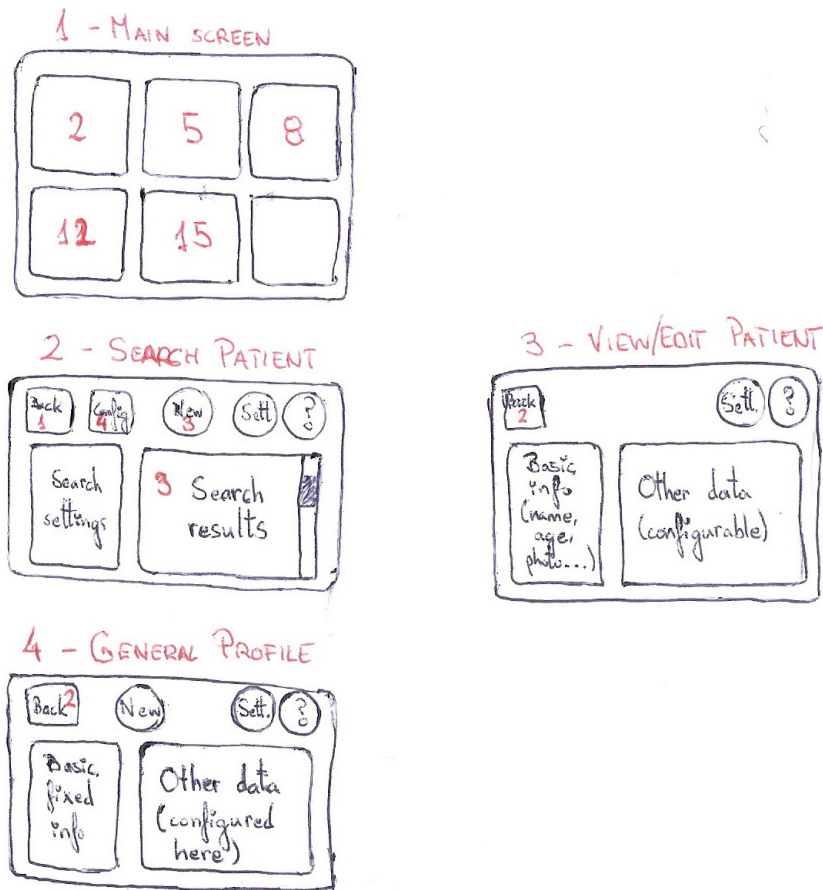 1 - MAIN SCREEN
2 5 8
12 15
2 - SEARCH PATIENT
Back 1
Config 4
New 3
Sett
?
Search
settings
3 Search
results
3 - VIEW/EDIT PATIENT
Back 2
Sett.
?
Basic
info
(name,
age,
photo...)
Other data
(configurable)
4 - GENERAL PROFILE
Back 2
New
Sett.
?
Basic,
fixed
info
Other data
(configured
here)